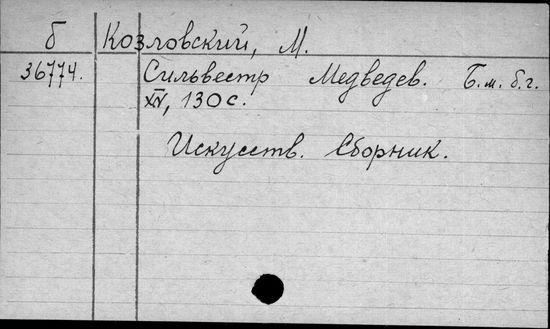 б Козловский, М.
36774. Сильвестр Медведев. Б.м.б.г.
XIV, 130 с.
Искусств. Сборник.